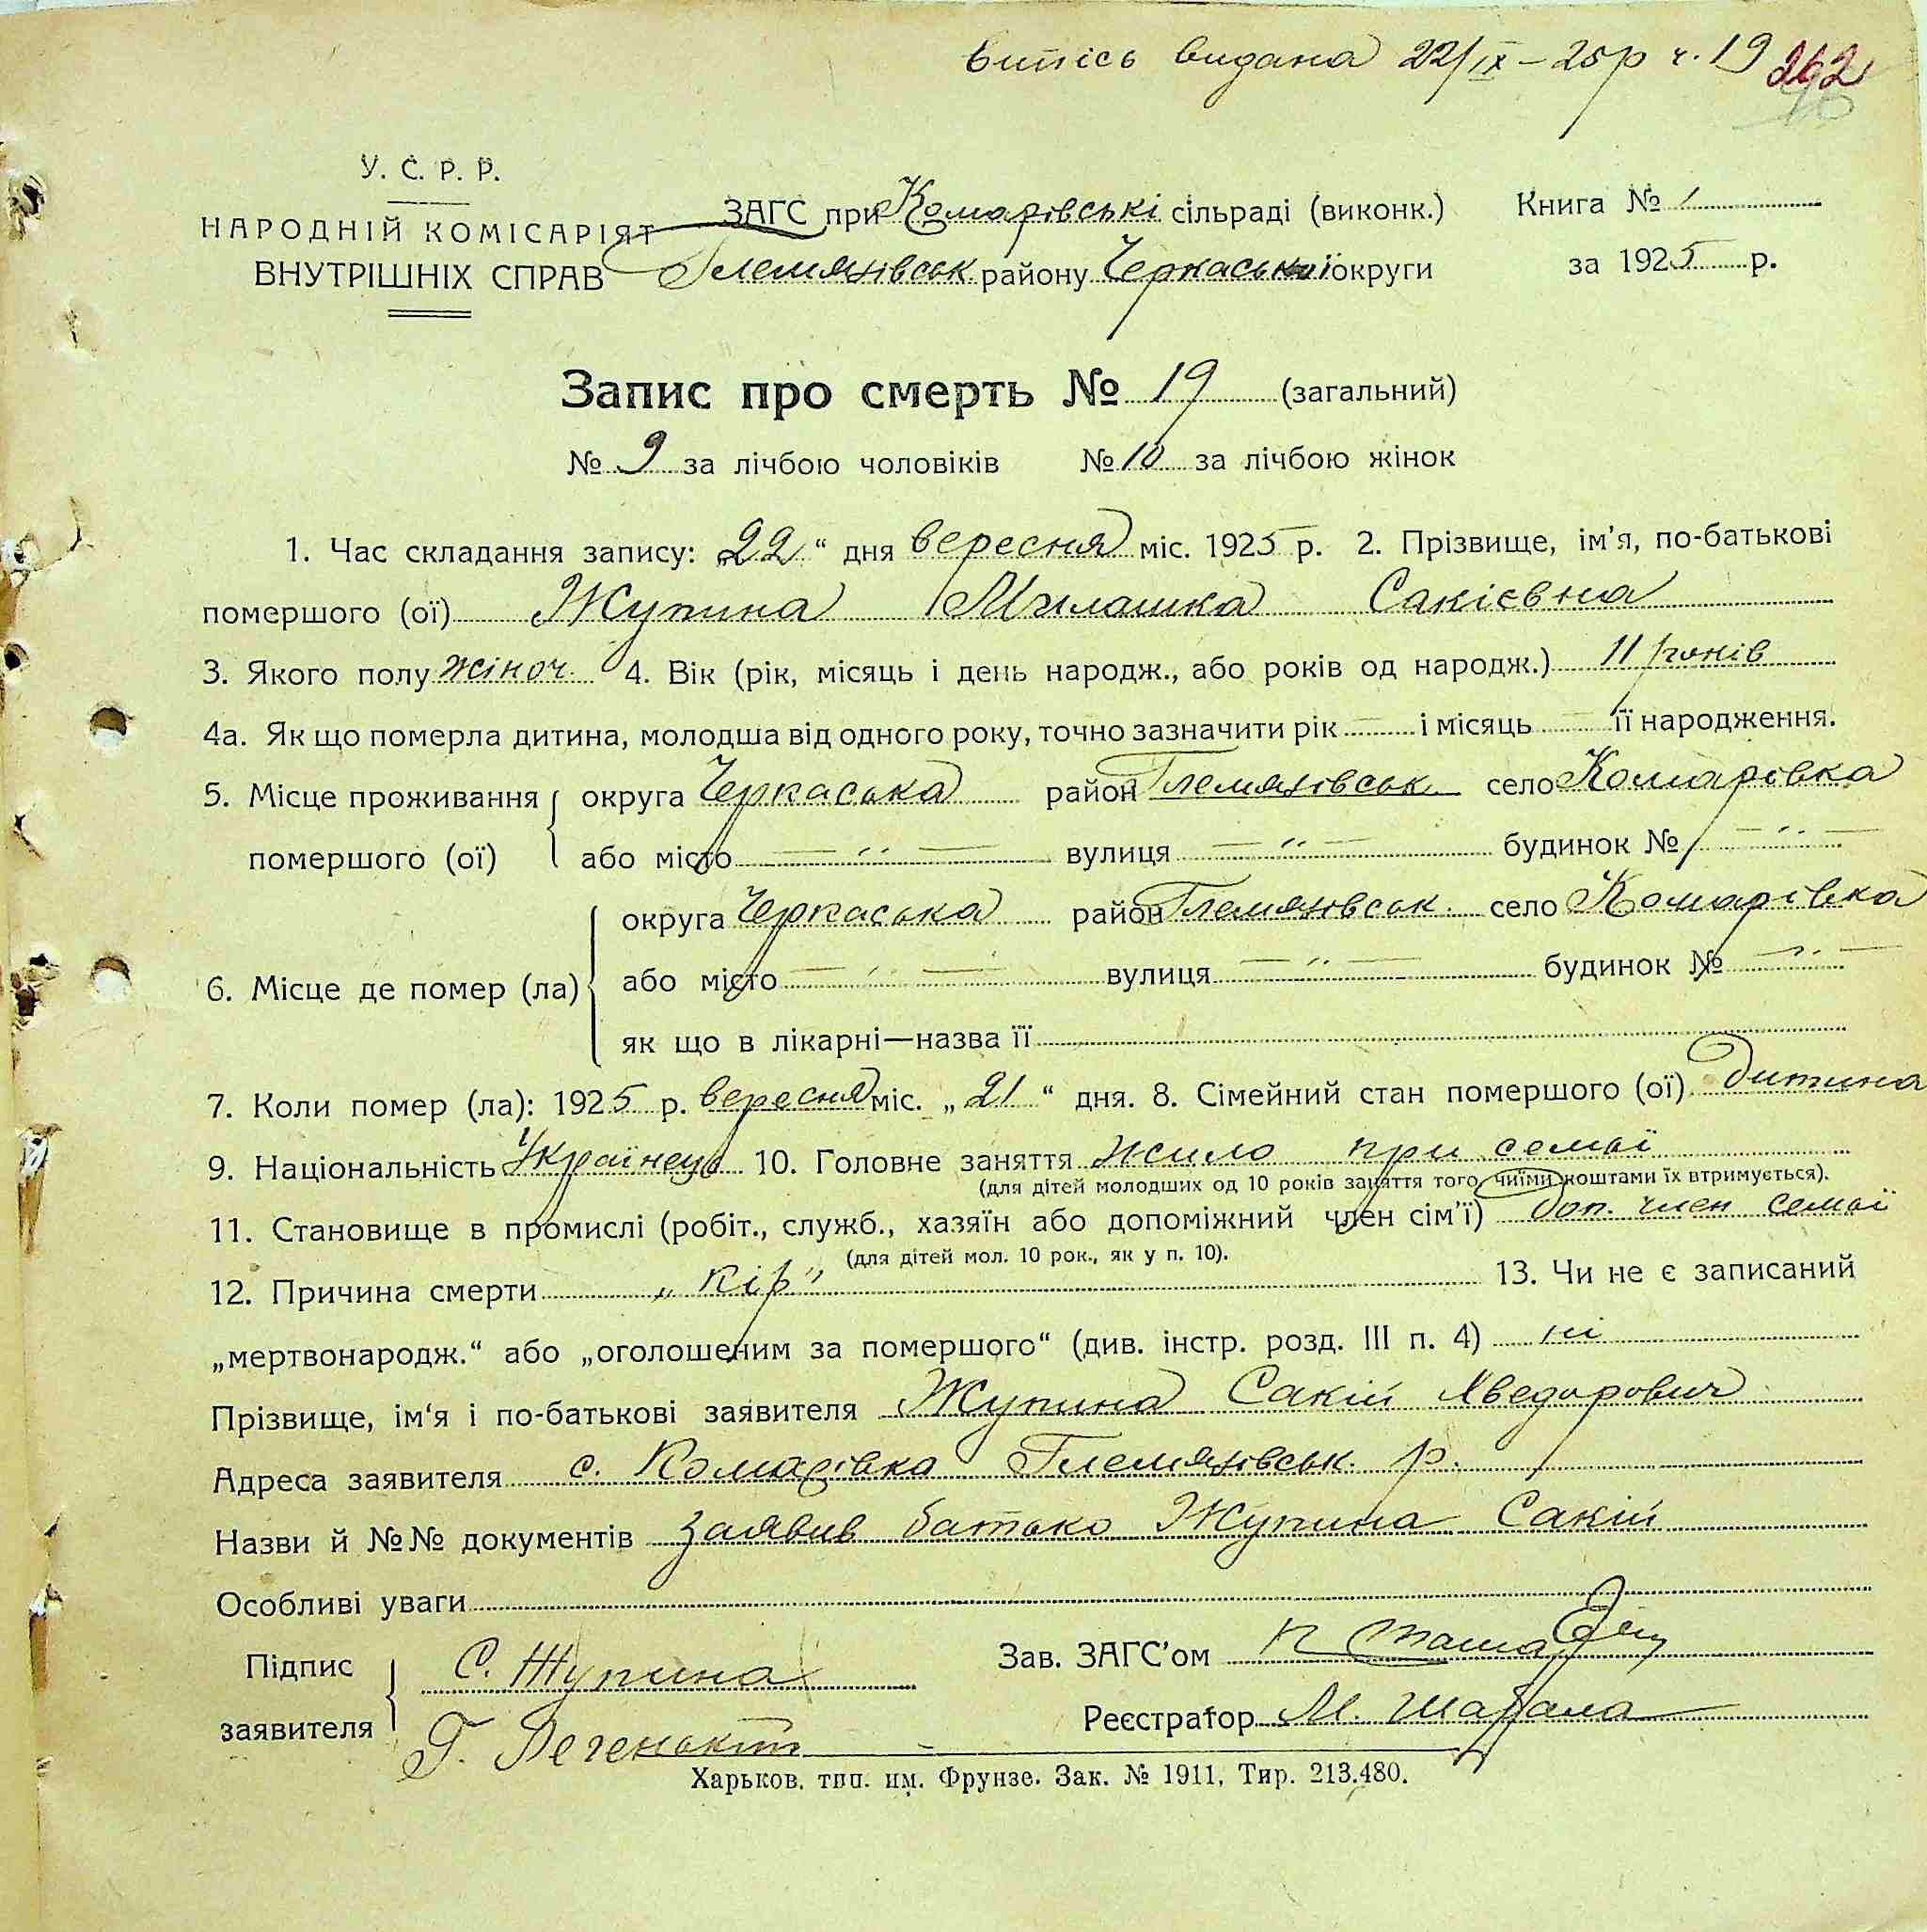 витісь видана 22/IX – 25 р ч. 19 262
У. С. Р. Р.
НАРОДНІЙ КОМІСАРІЯТ
ВНУТРІШНІХ СПРАВ
ЗАГС при Комарівські сільраді (виконк.) Книга № 1
Глемязівськ району Черкаської округи за 1925 р.
Запис про смерть № 19 (загальний)
№ 9 за лічбою чоловіків № 10 за лічбою жінок
1. Час складання запису: „22“ дня вересня міс. 1925 р. 2. Прізвище, ім'я, по-батькові
помершого (ої) Жупина Милашка Сакієвна
3. Якого полу жіноч. 4. Вік (рік, місяць і день народж., або років од народж.) 11 років
4а. Як що померла дитина, молодша від одного року, точно зазначити рік — і місяць — її народження.
5. Місце проживання помершого (ої) округа Черкаська район Глемязівськ село Комарівка
або місто — „ — вулиця — „ — будинок № — „ —
6. Місце де помер (ла) округа Черкаська район Глемязівськ. село Комарівка
або місто — „ — вулиця — „ — будинок № — „ —
як що в лікарні—назва її
7. Коли помер (ла): 1925 р. вересня міс. „21“ дня. 8. Сімейний стан помершого (ої) дитина
9. Національність Українець 10. Головне заняття жило при семьї
(для дітей молодших од 10 років заняття того, чиїми коштами їх втримується).
11. Становище в промислі (робіт., служб., хазяїн або допоміжний член сім'ї) доп. член семьї
(для дітей мол. 10 рок., як у п. 10).
12. Причина смерти „кір“ 13. Чи не є записаний
„мертвонародж.“ або „оголошеним за помершого“ (див. інстр. розд. III п. 4) ні
Прізвище, ім'я і по-батькові заявителя Жупина Сакій Хведорович
Адреса заявителя с. Комарівка Глемязівськ. р.
Назви й №№ документів заявив батько Жупина Сакій
Особливі уваги
Підпис заявителя С. Жупина Зав. ЗАГС'ом
Г. Реєстратор М.
Харьков. тип. им. Фрунзе. Зак. № 1911, Тир. 213.480.